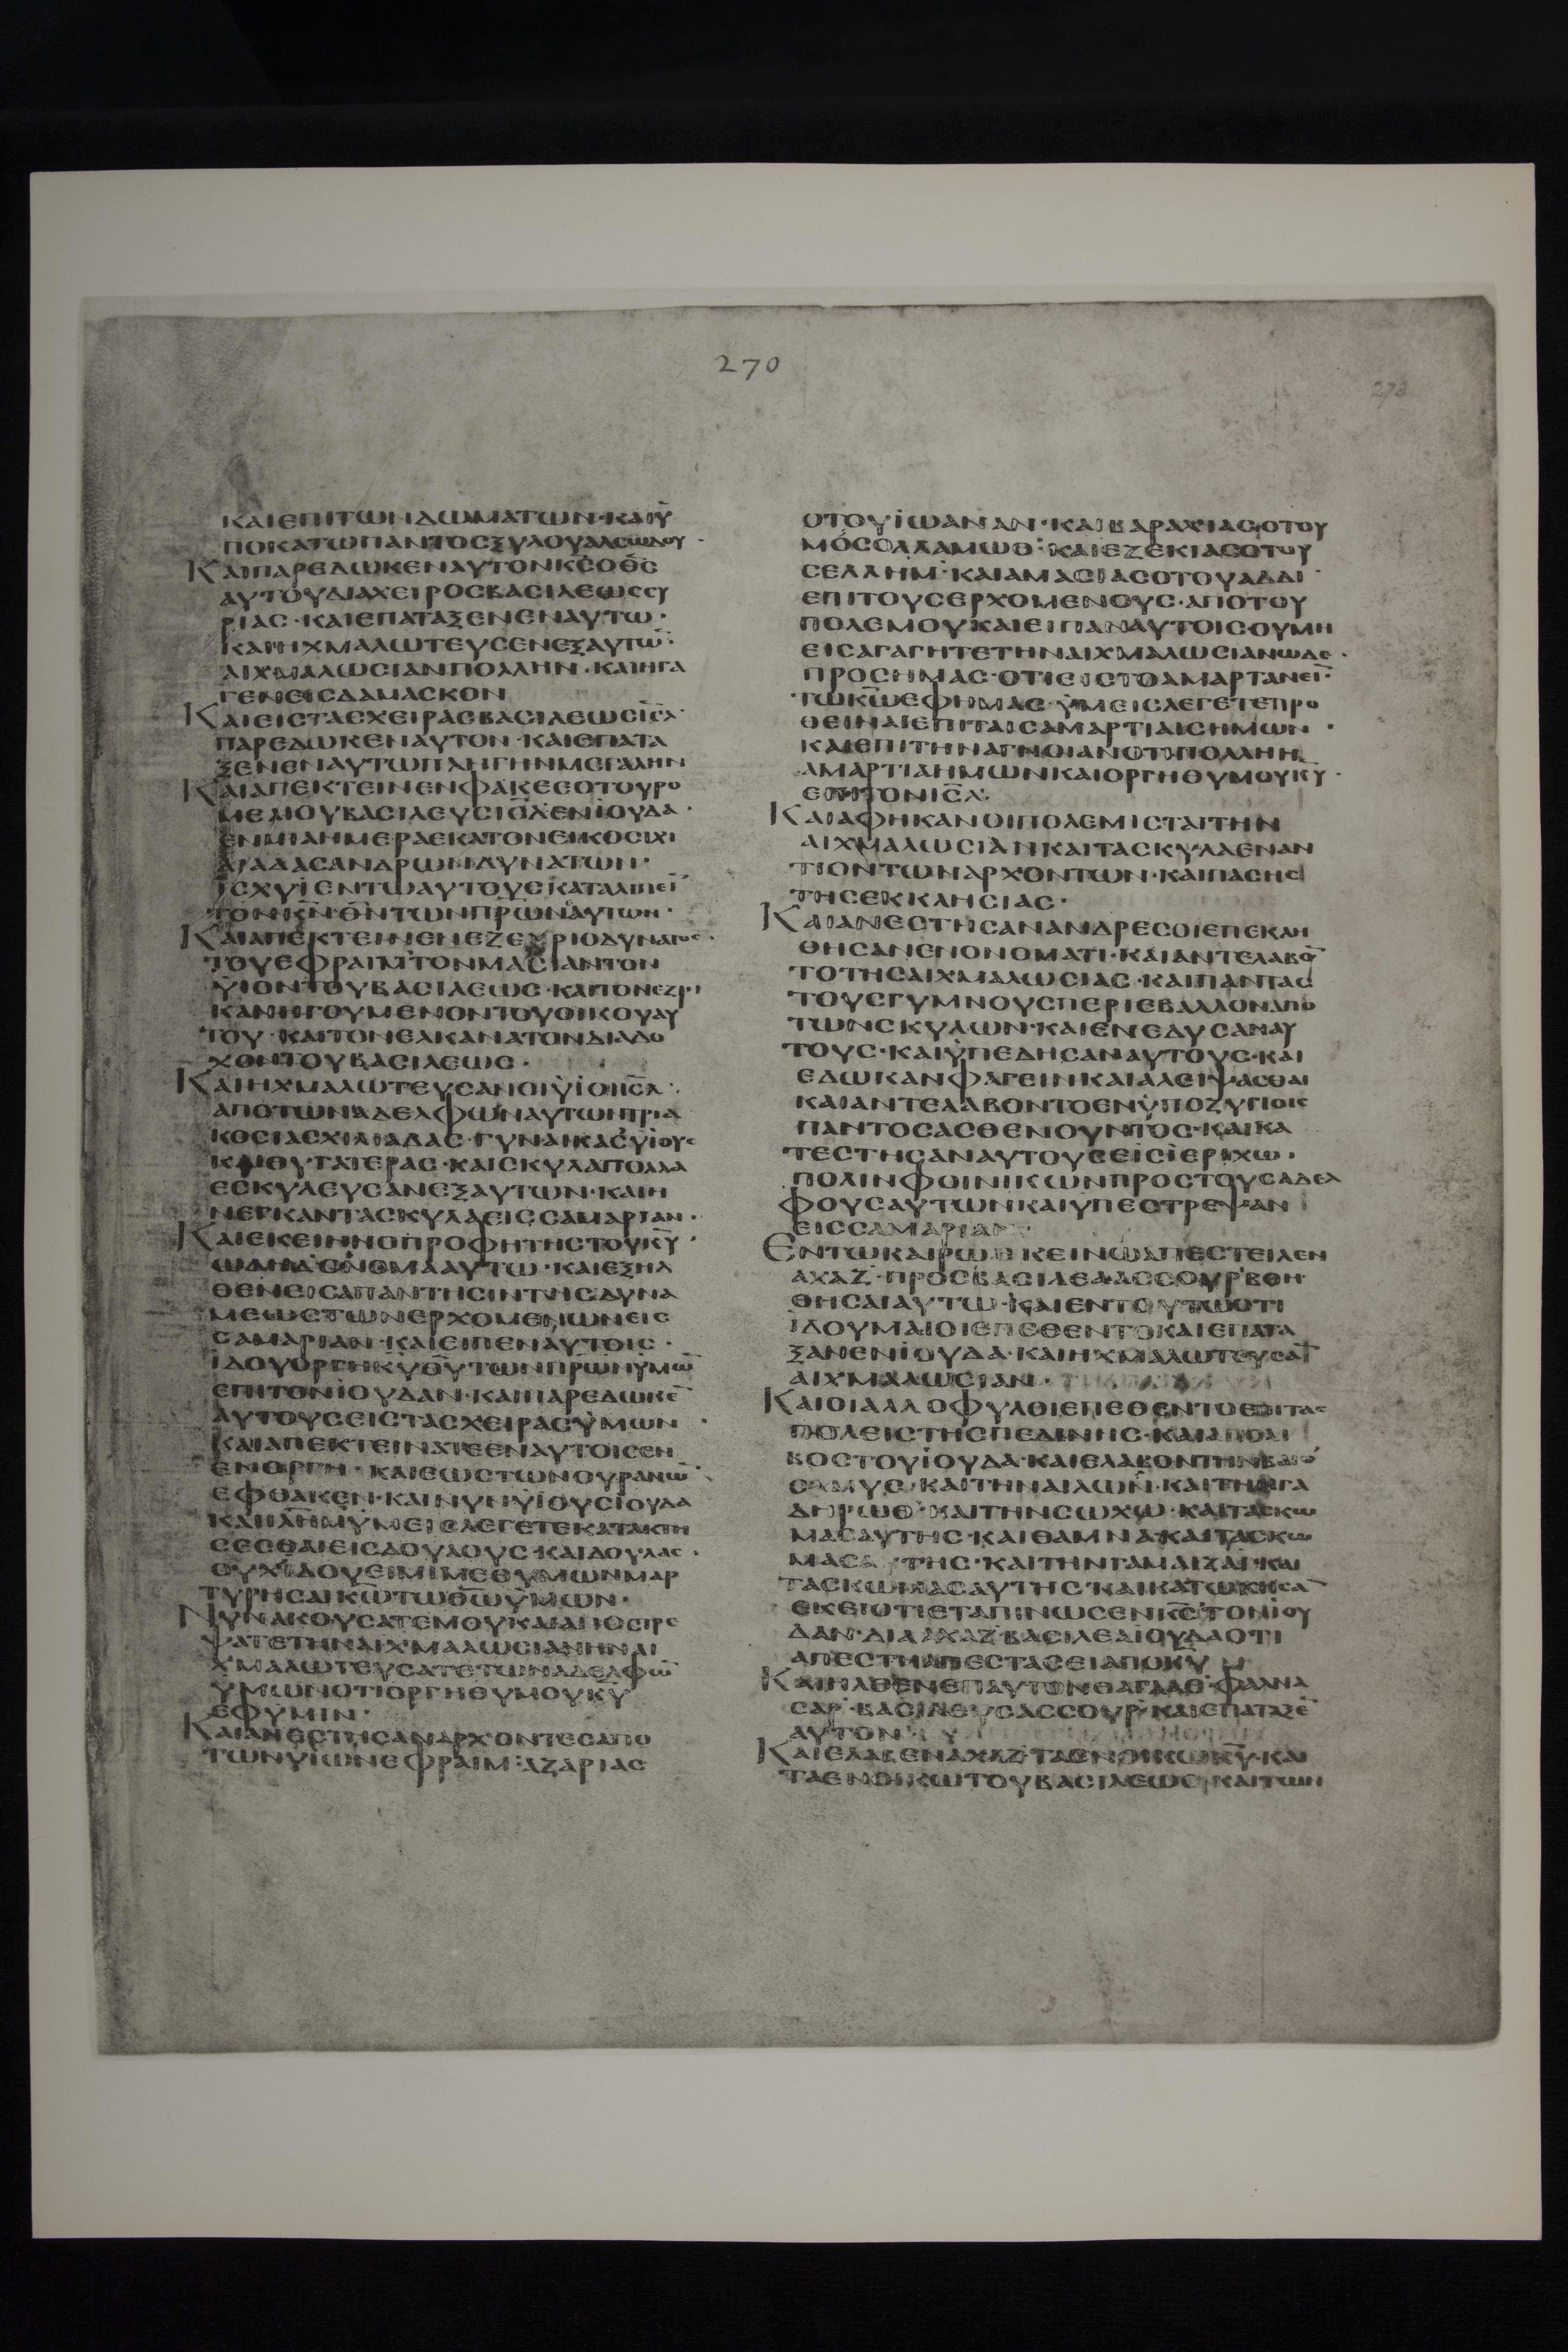 270
273
ΚΑΙΕΠΙΤΩΝΔΩΜΑΤΩΝ·ΚΑΙΫ
ΠΟΚΑΤΩΠΑΝΤΟΣΞΥΛΟΥΑΛΣΩΔΟΥ·
ΚΑΙΠΑΡΕΔΩΚΕΝΑΥΤΟΝΚ̅Σ̅ΟΘ̅Σ̅
ΑΥΤΟΥΔΙΑΧΕΙΡΟΣΒΑΣΙΛΕΩΣΣΥ
ΡΙΑΣ·ΚΑΙΕΠΑΤΑΞΕΝΕΝΑΥΤΩ·
ΚΑΙΗΧΜΑΛΩΤΕΥΣΕΝΕΞΑΥΤΩ̅·
ΑΙΧΜΑΛΩΣΙΑΝΠΟΛΛΗΝ·ΚΑΙΗΓΑ
ΓΕΝΕΙΣΔΑΜΑΣΚΟΝ
ΚΑΙΕΙΣΤΑΣΧΕΙΡΑΣΒΑΣΙΛΕΩΣΙ̅Σ̅Λ̅·
ΠΑΡΕΔΩΚΕΝΑΥΤΟΝ·ΚΑΙΕΠΑΤΑ
ΞΕΝΕΝΑΥΤΩΠΛΗΓΗΝΜΕΓΑΛΗΝ
ΚΑΙΑΠΕΚΤΕΙΝΕΝΦΑΚΕΕΟΤΟΥΡΟ
ΜΕΛΙΟΥΒΑΣΙΛΕΥΣΙ̅Σ̅Λ̅ΕΝΪΟΥΔΑ·
ΕΝΜΙΑΗΜΕΡΑΕΚΑΤΟΝΕΙΚΟΣΙΧΙ
ΛΙΑΔΑΣΑΝΔΡΩΝΔΥΝΑΤΩΝ·
ΪΣΧΥΪΕΝΤΩΑΥΤΟΥΣΚΑΤΑΛΙΠΕΙ̅
ΤΟΝΚ̅Ν̅·Θ̅Ν̅ΤΩΝΠ̅Ρ̅Ω̅Ν̅ΑΥΤΩΝ·
ΚΑΙΑΠΕΚΤΕΙΝΕΝΕΖΕΧΡΙΟΔΥΝΑΤΟΣ·
ΤΟΥΕΦΡΑΙΜ·ΤΟΝΜΑΣΙΑΝΤΟΝ
ΥΙΟΝΤΟΥΒΑΣΙΛΕΩΣ·ΚΑΙΤΟΝΕΖΡΙ
ΚΑΝΗΓΟΥΜΕΝΟΝΤΟΥΟΙΚΟΥΑΥ
ΤΟΥ·ΚΑΙΤΟΝΕΛΚΑΝΑΤΟΝΔΙΑΔΟ
ΧΟΝΤΟΥΒΑΣΙΛΕΩΣ·
ΚΑΙΗΧΜΑΛΩΤΕΥΣΑΝΟΙΫΪΟΙΙ̅Σ̅Λ̅·
ΑΠΟΤΩΝΑΔΕΛΦΩΝΑΥΤΩΝΤΡΙΑ
ΚΟΣΙΑΣΧΙΛΙΑΔΑΣ·ΓΥΝΑΙΚΑΣΫΪΟΥΣ
ΚΑΙΘΥΓΑΤΕΡΑΣ·ΚΑΙΣΚΥΛΑΠΟΛΛΑ
ΕΣΚΥΛΕΥΣΑΝΕΞΑΥΤΩΝ·ΚΑΙΗ
ΝΕΓΚΑΝΤΑΣΚΥΛΑΕΙΣΣΑΜΑΡΙΑΝ·
ΚΑΙΕΚΕΙΗΝΟΠΡΟΦΗΤΗΣΤΟΥΚ̅Υ̅·
ΩΔΗΔΟΝΟΜΑΑΥΤΩ·ΚΑΙΕΞΗΛ
ΘΕΝΕΙΣΑΠΑΝΤΗΣΙΝΤΗΣΔΥΝΑ
ΜΕΩΣΤΩΝΕΡΧΟΜΕΝΩΝΕΙΣ
ΣΑΜΑΡΙΑΝ·ΚΑΙΕΙΠΕΝΑΥΤΟΙΣ·
ΪΔΟΥΟΡΓΗΚ̅Υ̅Θ̅Υ̅ΤΩΝΠ̅Ρ̅Ω̅Ν̅ΫΜΩ̅
ΕΠΙΤΟΝΪΟΥΔΑΝ·ΚΑΙΠΑΡΕΔΩΚΕ̅
ΑΥΤΟΥΣΕΙΣΤΑΣΧΕΙΡΑΣΫΜΩΝ·
ΚΑΙΑΠΕΚΤΕΙΝΑΤΕΕΝΑΥΤΟΙΣΕΝ
ΕΝΟΡΓΗ·ΚΑΙΕΩΣΤΩΝΟΥΡΑΝΩ̅·
ΕΦΘΑΚΕΝ·ΚΑΙΝΥΝΫΪΟΥΣΪΟΥΔΑ
ΚΑΙΙ̅Λ̅Η̅Μ̅ΫΜΕΙΣΛΕΓΕΤΕΚΑΤΑΚΤΗ
ΣΕΣΘΑΙΕΙΣΔΟΥΛΟΥΣ·ΚΑΙΔΟΥΛΑΣ·
ΟΥΧΪΔΟΥΕΙΜΙΜΕΘΥΜΩΝΜΑΡ
ΤΥΡΗΣΑΙΚ̅Ω̅ΤΩΘ̅Ω̅ΫΜΩΝ·
ΝΥΝΑΚΟΥΣΑΤΕΜΟΥΚΑΙΑΠΟΣΤΡΕ
ΨΑΤΕΤΗΝΑΙΧΜΑΛΩΣΙΑΝΗΝΑΙ
ΧΜΑΛΩΤΕΥΣΑΤΕΤΩΝΑΔΕΛΦΩ̅
ΫΜΩΝΟΤΙΟΡΓΗΘΥΜΟΥΚ̅Υ̅
ΕΦΫΜΙΝ·
ΚΑΙΑΝΕΣΤΗΣΑΝΑΡΧΟΝΤΕΣΑΠΟ
ΤΩΝΫΪΩΝΕΦΡΑΙΜ·ΑΖΑΡΙΑΣ
ΟΤΟΥΪΩΑΝΑΝ·ΚΑΙΒΑΡΑΧΙΑΣΟΤΟΥ
ΜΟΣΟΛΛΑΜΩΘ·ΚΑΙΕΖΕΚΙΑΣΟΤΟΥ
ΣΕΛΛΗΜ·ΚΑΙΑΜΑΣΙΑΣΟΤΟΥΑΔΔΙ·
ΕΠΙΤΟΥΣΕΡΧΟΜΕΝΟΥΣ·ΑΠΟΤΟΥ
ΠΟΛΕΜΟΥΚΑΙΕΙΠΑΝΑΥΤΟΙΣ·ΟΥΜΗ
ΕΙΣΑΓΑΓΗΤΕΤΗΝΑΙΧΜΑΛΩΣΙΑΝΩΔΕ·
ΠΡΟΣΗΜΑΣ·ΟΤΙΕΙΣΤΟΑΜΑΡΤΑΝΕΙ̅·
ΤΩΚ̅Ω̅ΕΦΗΜΑΣ·ΫΜΕΙΣΛΕΓΕΤΕΠΡΟ
ΘΕΙΝΑΙΕΠΙΤΑΙΣΑΜΑΡΤΙΑΙΣΗΜΩΝ·
ΚΑΙΕΠΙΤΗΝΑΓΝΟΙΑΝΟΤΙΠΟΛΛΗΗ
ΑΜΑΡΤΙΑΗΜΩΝΚΑΙΟΡΓΗΘΥΜΟΥΚ̅Υ̅·
ΕΠΙΤΟΝΙ̅Σ̅Λ̅·
ΚΑΙΑΦΗΚΑΝΟΙΠΟΛΕΜΙΣΤΑΙΤΗΝ
ΑΙΧΜΑΛΩΣΙΑΝΚΑΙΤΑΣΚΥΛΑΕΝΑΝ
ΤΙΟΝΤΩΝΑΡΧΟΝΤΩΝ·ΚΑΙΠΑΣΗΣ
ΤΗΣΕΚΚΛΗΣΙΑΣ·
ΚΑΙΑΝΕΣΤΗΣΑΝΑΝΔΡΕΣΟΙΕΠΕΚΛΗ
ΘΗΣΑΝΕΝΟΝΟΜΑΤΙ·ΚΑΙΑΝΤΕΛΑΒΟ̅
ΤΟΤΗΣΑΙΧΜΑΛΩΣΙΑΣ·ΚΑΙΠΑΝΤΑΣ
ΤΟΥΣΓΥΜΝΟΥΣΠΕΡΙΕΒΑΛΛΟΝΑΠΟ
ΤΩΝΣΚΥΛΩΝ·ΚΑΙΕΝΕΔΥΣΑΝΑΥ
ΤΟΥΣ·ΚΑΙΫΠΕΔΗΣΑΝΑΥΤΟΥΣ·ΚΑΙ
ΕΔΩΚΑΝΦΑΓΕΙΝΚΑΙΑΛΕΙΨΑΣΘΑΙ
ΚΑΙΑΝΤΕΛΑΒΟΝΤΟΕΝΫΠΟΖΥΓΙΟΙΣ
ΠΑΝΤΟΣΑΣΘΕΝΟΥΝΤΟΣ·ΚΑΙΚΑ
ΤΕΣΤΗΣΑΝΑΥΤΟΥΣΕΙΣΪΕΡΙΧΩ·
ΠΟΛΙΝΦΟΙΝΙΚΩΝΠΡΟΣΤΟΥΣΑΔΕΛ
ΦΟΥΣΑΥΤΩΝΚΑΙΥΠΕΣΤΡΕΨΑΝ
ΕΙΣΣΑΜΑΡΙΑΝ·
ΕΝΤΩΚΑΙΡΩΕΚΕΙΝΩΑΠΕΣΤΕΙΛΕΝ
ΑΧΑΖ·ΠΡΟΣΒΑΣΙΛΕΑΑΣΣΟΥΡΒΟΗ
ΘΗΣΑΙΑΥΤΩ·ΚΑΙΕΝΤΟΥΤΩΟΤΙ
ΪΔΟΥΜΑΙΟΙΕΠΕΘΕΝΤΟΚΑΙΕΠΑΤΑ
ΞΑΝΕΝΪΟΥΔΑ·ΚΑΙΗΧΜΑΛΩΤΕΥΣΑ̅
ΑΙΧΜΑΛΩΣΙΑΝ·
ΚΑΙΟΙΑΛΛΟΦΥΛΟΙΕΠΕΘΕΝΤΟΕΠΙΤΑΣ
ΠΟΛΕΙΣΤΗΣΠΕΔΙΝΗΣ·ΚΑΙΑΠΟΛΙ
ΒΟΣΤΟΥΪΟΥΔΑ·ΚΑΙΕΛΑΒΟΝΤΗΝΒΑΙΘ
ΣΑΜΥΣ·ΚΑΙΤΗΝΑΙΛΩΝ·ΚΑΙΤΗΝΓΑ
ΔΗΡΩΘ·ΚΑΙΤΗΝΣΩΧΩ·ΚΑΙΤΑΣΚΩ
ΜΑΣΑΥΤΗΣ·ΚΑΙΘΑΜΝΑΚΑΙΤΑΣΚΩ
ΜΑΣΑΥΤΗΣ·ΚΑΙΤΗΝΓΑΜΑΙΖΑΙ·ΚΑΙ
ΤΑΣΚΩΜΑΣΑΥΤΗΣ·ΚΑΙΚΑΤΩΚΗΣΑ̅
ΕΚΕΙΟΤΙΕΤΑΠΙΝΩΣΕΝΚ̅Σ̅ΤΟΝΪΟΥ
ΔΑΝ·ΔΙΑΑΧΑΖ·ΒΑΣΙΛΕΑΪΟΥΔΑΟΤΙ
ΑΠΕΣΤΗΑΠΕΣΤΑΣΕΙΑΠΟΚ̅Υ̅
ΚΑΙΗΛΘΕΝΕΠΑΥΤΟΝΘΑΓΛΑΘ·ΦΑΛΝΑ
ΣΑΡ·ΒΑΣΙΛΕΥΣΑΣΣΟΥΡ·ΚΑΙΕΠΑΤΑΞΕ̅
ΑΥΤΟΝ
ΚΑΙΕΛΑΒΕΝΑΧΑΖ·ΤΑΕΝΟΙΚΩΚ̅Υ̅·ΚΑΙ
ΤΑΕΝΟΙΚΩΤΟΥΒΑΣΙΛΕΩΣ·ΚΑΙΤΩΝ